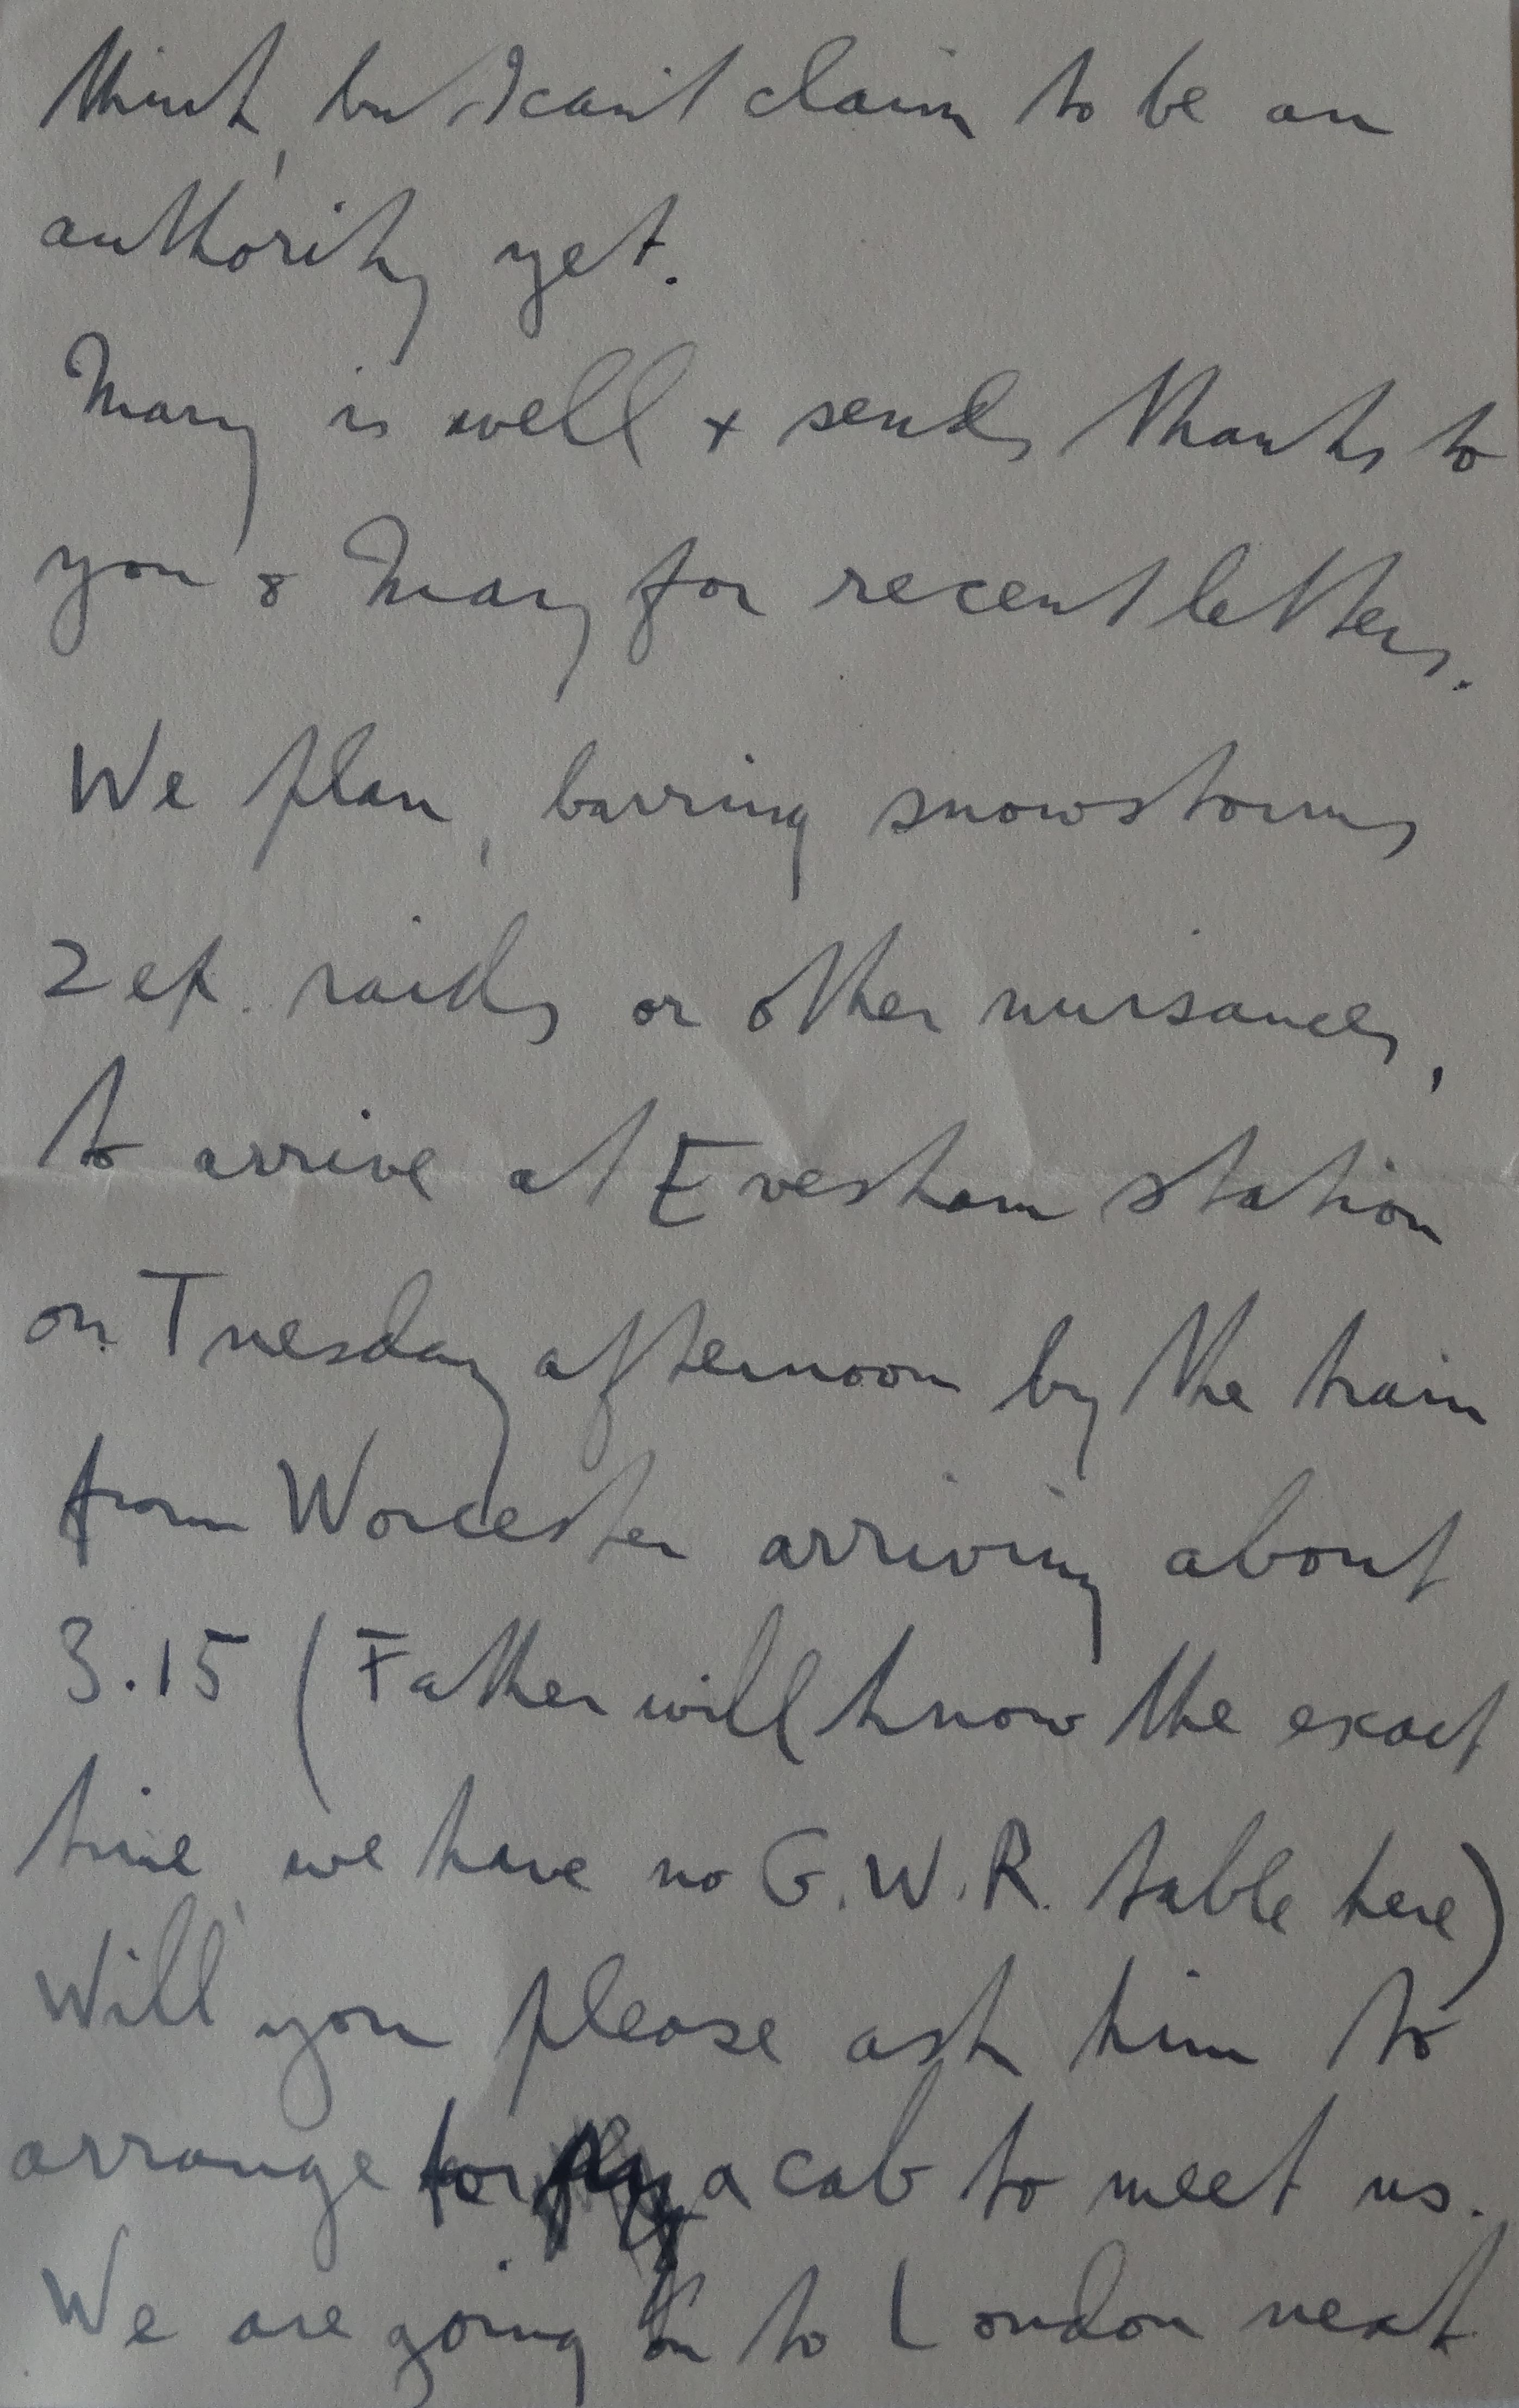 think, but I can't claim to be an
authority yet.
Mary is well + sends thanks to
you & Mary for recent letters.
We plan, barring snowstorms
Zep. raids or other nuisances,
to arrive at Evesham station
on Tuesday afternoon by the train
from Worcester arriving about
3.15 (Father will know the exact
time, we have no G.W.R. table here)
Will you please ask him to
arrange for a cab to meet us.
We are going on to London next